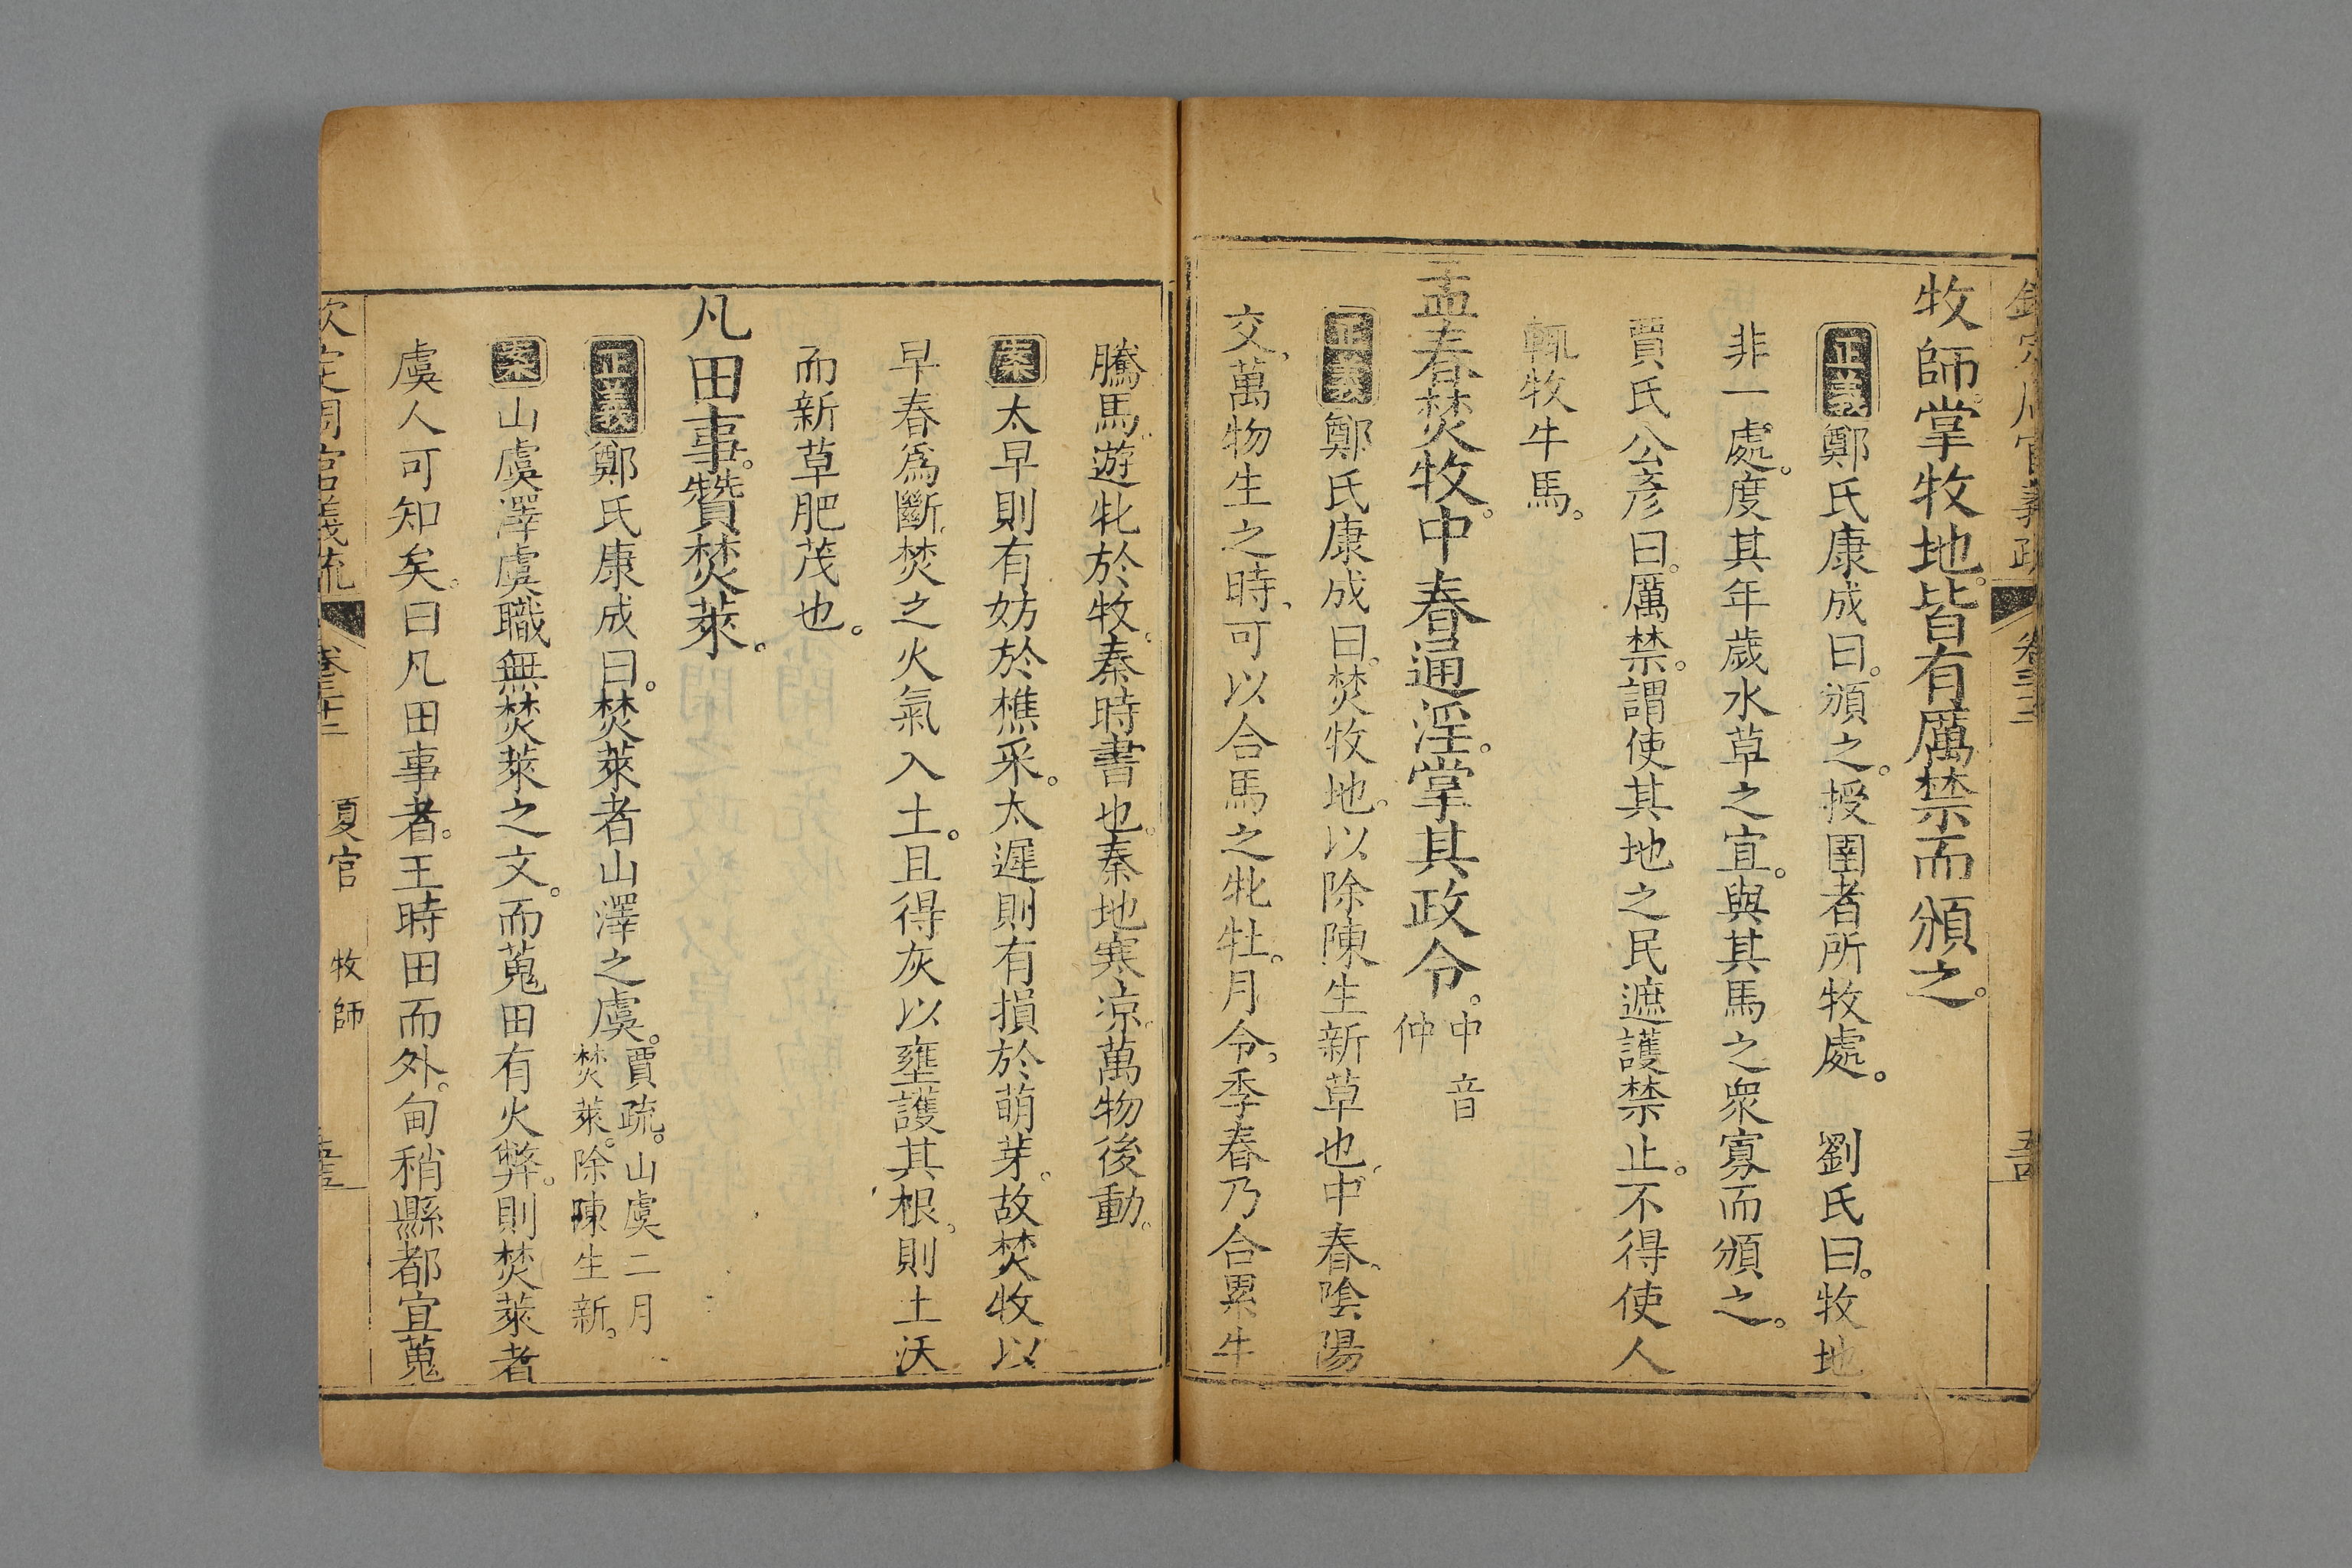 牧師。掌牧地。皆有厲禁而頒之。
正義鄭氏康成曰。頒之。授圉者所牧處。 劉氏曰。牧地
非一處。度其年歲水草之宜。與其馬之衆寡而頒之。
賈氏公彥曰。厲禁。謂使其地之民遮護禁止。不得使人
輒牧牛馬。
孟春焚牧。中春通淫。掌其政令。中音仲
正義鄭氏康成曰。焚牧地。以除陳生新草也、中春、陰陽
交、萬物生之時、可以合馬之牝牡。月令、季春乃合累牛
騰馬、遊牝於牧。秦時書也。秦地寒凉、萬物後動。
案太早則有妨於樵采。太遲則有損於萌芽。故焚牧以
早春爲斷、焚之火氣入土。且得灰以壅護其根、則土沃
而新草肥茂也。
凡田事。贊焚萊。
正義鄭氏康成曰。焚萊者山澤之虞。賈疏。山虞二月
焚萊。除陳生新。
案山虞澤虞職無焚萊之文。而蒐田有火弊。則焚萊者
虞人可知矣。曰凡田事者。王時田而外。甸稍縣都宜蒐
欽定周官義疏 卷三十二 夏官 牧師